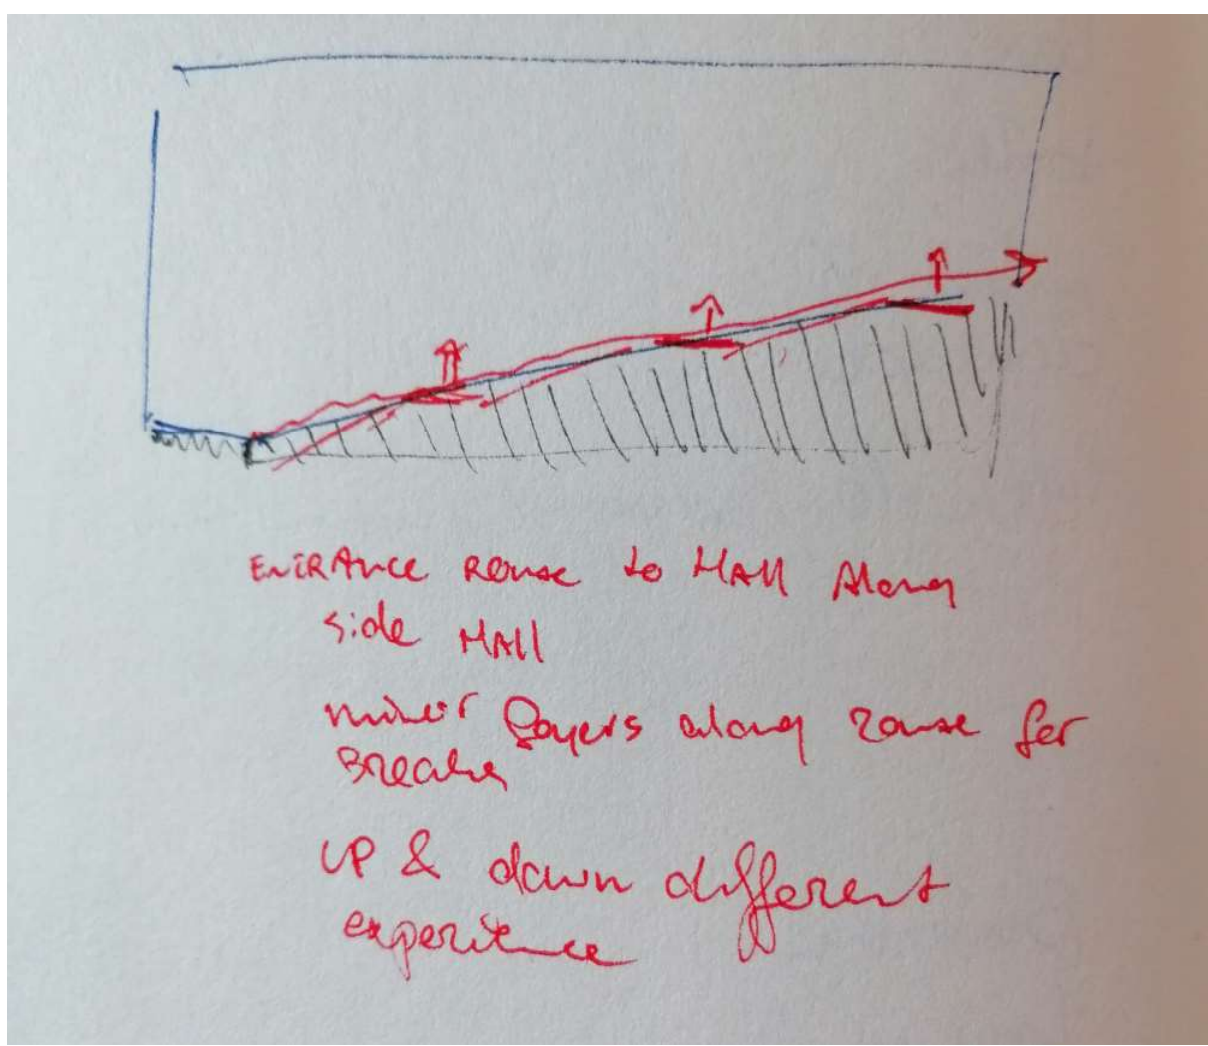 ENTRANCE ROUTE to HAll Along
side HAll
minor foyers along route for
Breaks
UP & down different
experience